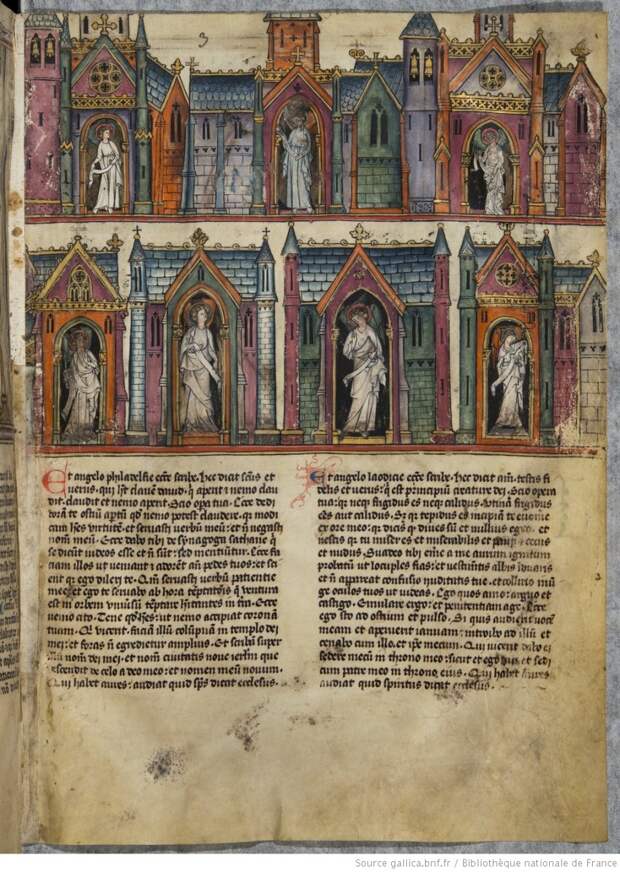 3
Et angelo philadelfie eccłe scribe. Hec dicit scūs et
verus. qui hēt clauē dauid. qͥ aperit ⁊ nemo clau
dit. claudit et nemo aperit. Scio opera tua. Ecce dedi
coram te ostiū aptū qd̄ nemo potest claudere. qͣ modi
cam hēs virtutē. et seruasti verbū meū. et n̄ negasti
nom̄ meū. Ecce dabo tibi de synagoga sathane qͥ
se dicūt iudeos esse et n̄ sūt: sed mentiūtur. Ecce fa
ciam illos ut ueniant ⁊ adorēt an̄ pedes tuos: et sci
ent qͣ ego dilexi te. Qm̄ seruasti verbū patientie
mee: et ego te seruabo ab hora tēptatiōis q̄ uentura
est in orbem vniuersū tēptare hitantes in tra. Ecce
uenio cito. Tene qd̄ hēs: ut nemo accipiat coronā
tuam. Qͥ vicerit. faciā illū colūpnā in templo dei
mei: et foras n̄ egredietur amplius. Et scribā super
illū nom̄ dei mei. et nom̄ ciuitatis noue ierlm̄ que
descendit de celo a deo meo: et nomen meū nouum.
Qui habet aures: audiat quid sp̄s dicat ecclesiis.
Et angelo laodicie eccłe scribe. Hec dicit am̄. testis fi
delis et uerus: qͥ est principiū creature dei. Scio opera
tua: qͣ neqꝫ frigidus es neqꝫ calidus. Utinā frigidus
esses aut calidus. Sꝫ qͣ tepidus es incipiā te euome
ex ore meo. qͣ dicis qͣ diues sū et nullius egeo. et
nescis qͣ tu miser es et miserabilis et paup̄ et cecus
et nudus. Suadeo tibi eme a me aurum ignitum
probatū ut locuples fias: et uestimētis albis induaris
et n̄ appareat confusio nuditatis tue. et collirio inū
ge oculos tuos ut uideas. Ego quos amo: arguo et
castigo. Emulare ergo: et penitentiam age. Ecce
ego sto ad ostium et pulso. Si quis audierit vocē
meam et aperuerit ianuam: introibo ad illū: et
cenabo cum illo. et ip̄e mecum. Qui uicerit dabo ei
sedere mecū in throno meo: sicut et ego uici et sedi
cum patre meo in throno eius. Qui habet aures
audiat quid spiritus dicat ecclesiis.
Source gallica.bnf.fr / Bibliothèque nationale de France